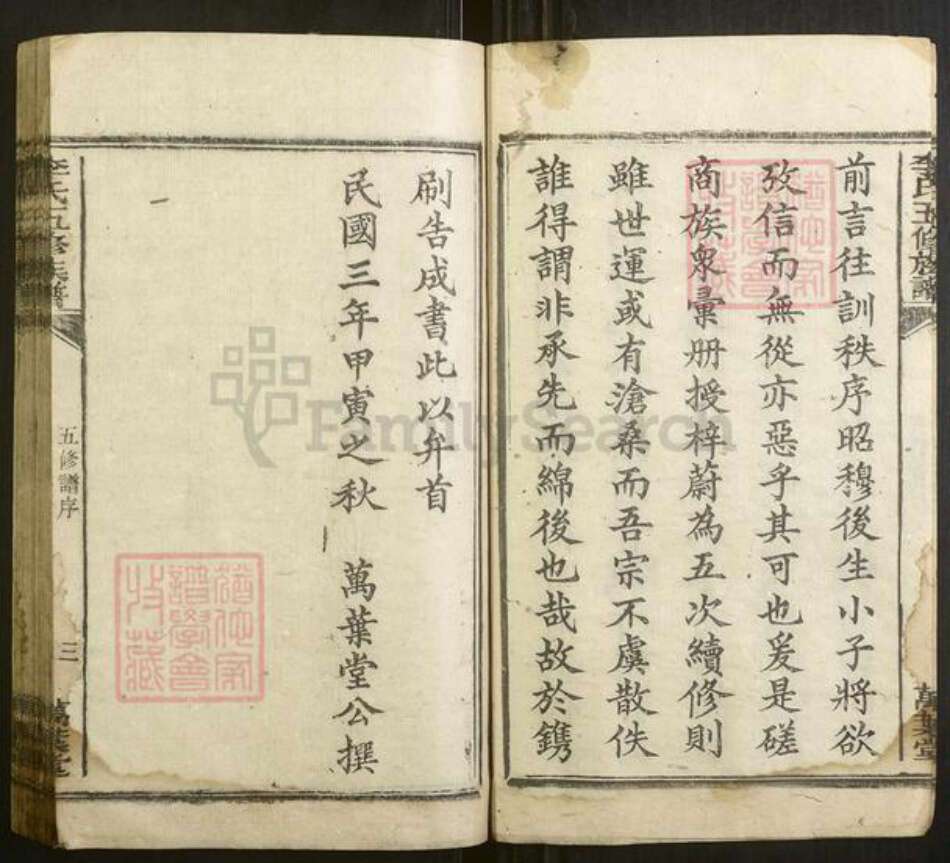 李氏五修族譜
萬葉堂
前言往訓秩序昭穆後生小子將欲
攷信而無從亦惡乎其可也爰是磋
商族衆彙册授梓蔚為五次續修則
雖世運或有滄桑而吾宗不虞散佚
誰得謂非承先而綿後也哉故於鐫
刷告成書此以弁首
民國三年甲寅之秋 萬葉堂公撰
李氏五修族譜
五修譜序
三
萬葉堂
FamilySearch
譜學會
收藏
譜學會
收藏